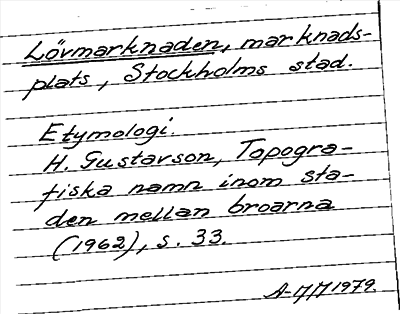 Lövmarknaden, marknads-
plats, Stockholms stad.
Etymologi.
H. Gustavson, Topogra-
fiska namn inom sta-
den mellan broarna
(1962), s. 33.
1979.